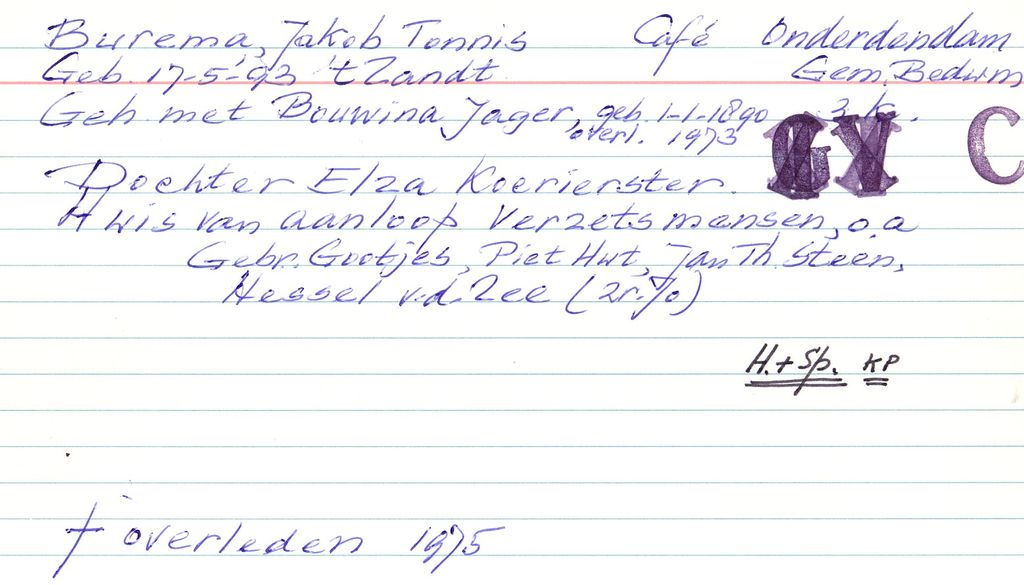 Burema, Jakob Tonnis Café Onderdendam
Geb. 17-5-93 't Zandt Gem. Bedum
Geh. met Bouwina Jager, geb. 1-1-1890 3 k.
overl. 1973
GV C
Dochter Elza Koerierster.
Huis van aanloop Verzetsmensen, o.a
Gebr. Gootjes, Piet Hut, Jan Th. Steen,
Hessel v.d. Zee
H. + Sp. KP
† overleden 1975